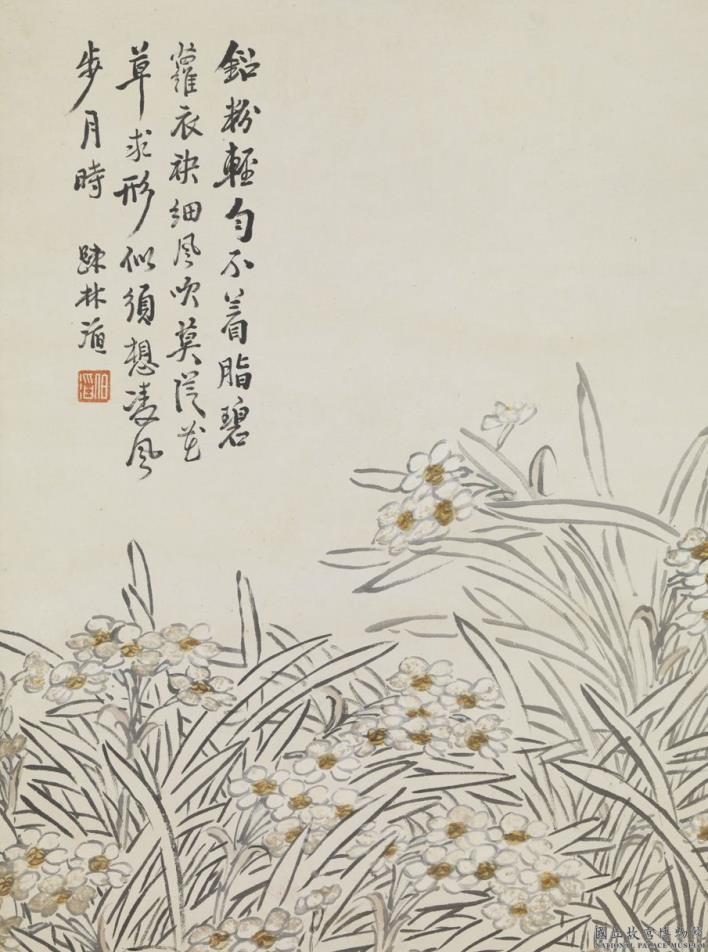 鉛粉輕勻不着脂碧
蘿衣袂細風吹莫從花
草求形似須想凌風
步月時 踈林滔
伯滔
國立故宮博物院
NATIONAL PALACE MUSEUM